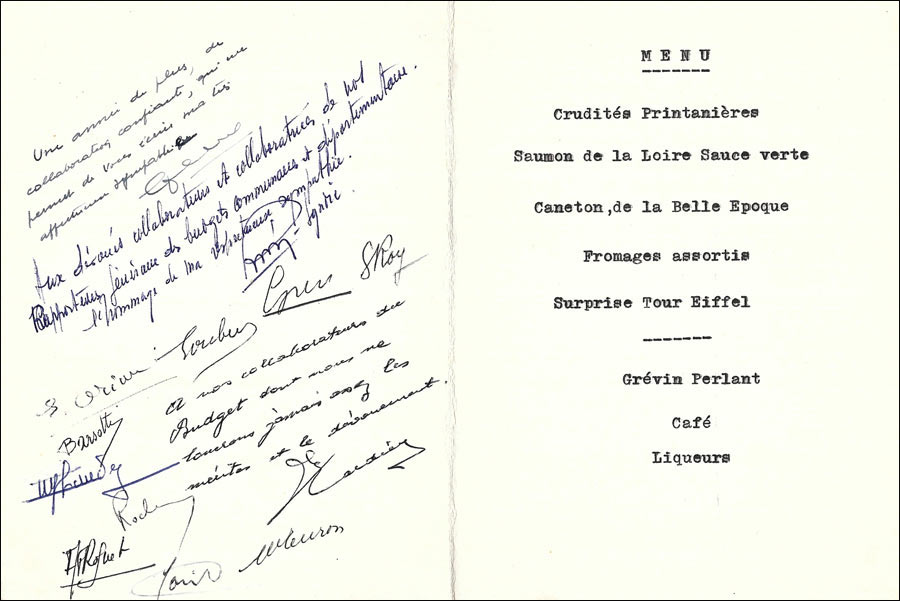 Une année de plus, de
collaboration confiante, qui me
permet de vous écrire ma très
affectueuse sympathie
Aux dévoués collaborateurs et collaboratrices de nos
Rapporteurs Généraux des budgets communaux et départementaux.
l'hommage de ma respectueuse sympathie.
S Roy
Barsotti
A nos collaborateurs du
Budget dont nous ne
louerons jamais assez les
mérites et le dévouement.
MENU
Crudités Printanières
Saumon de la Loire Sauce verte
Caneton,de la Belle Epoque
Fromages assortis
Surprise Tour Eiffel
Grévin Perlant
Café
Liqueurs